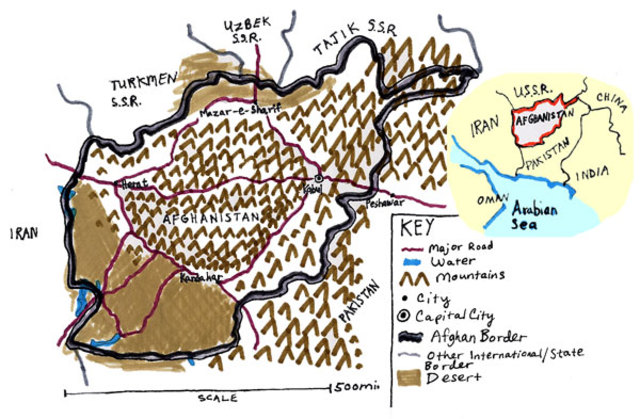 UZBEK
S.S.R.
TAJIK S.S.R.
TURKMEN
S.S.R.
Mazar-e-Sharif
Herat
Kabul
AFGHANISTAN
Peshawar
IRAN
Kandahar
PAKISTAN
500mi
SCALE
U.S.S.R.
CHINA
IRAN
AFGHANISTAN
PAKISTAN
INDIA
OMAN
Arabian
Sea
KEY
Major Road
Water
Mountains
City
Capital City
Afghan Border
Other International/State
Border
Desert